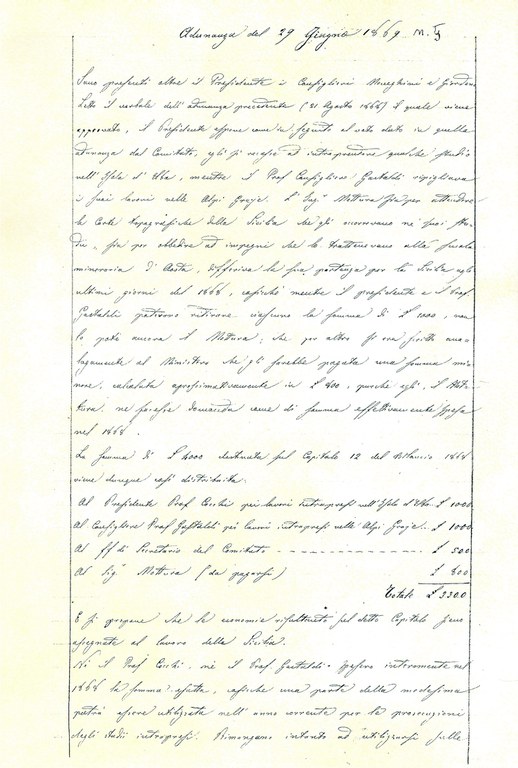 Adunanza del 29 Giugno 1869 N.
Sono presenti oltre il Presidente i Consiglieri Meneghini e Giordano
Letto il verbale dell'adunanza precedente (21 Agosto 1868) il quale viene
approvato, il Presidente espone come in seguito al voto dato in quella
adunanza dal Comitato, egli si recasse ad intraprendere qualche studio
nell'Isola d'Elba, mentre il Prof Consigliere Gastaldi ripigliava
i suoi lavori nelle Alpi Graje. L'Ing. Mottura sia per attendere
le Carte topografiche della Sicilia che gli occorrevano ne' suoi stu-
dii, sia per obbedire ad impegni che lo trattenevano alla scuola
mineraria d'Aosta, differiva la sua partenza per la Sicilia agli
ultimi giorni del 1868, cosichè mentre il presidente e il Prof.
Gastaldi poterono ritirare ciascuno la somma di £ 1000, non
lo potè ancora il Mottura; che per altro si era scritto ana-
logamente al Ministero che gli sarebbe pagata una somma mi-
nore, calcolata approssimativamente in £ 800, purchè egli, il Mot-
tura, ne facesse domanda come di somma effettivamente spesa
nel 1868.
La somma di £ 4000 destinata sul Capitolo 12 del Bilancio 1868
viene dunque così distribuita.
Al Presidente Prof Cocchi pei lavori intrapresi nell'Isola d'Elba £ 1000
Al Consigliere Prof Gastaldi pei lavori intrapresi nelle Alpi Graje.. £ 1000
Al ff di Secretario del Comitato - - - - - - - - - - £ 500
Al Sig. Mottura (da pagarsi) £ 800
Totale £ 3300
E si propone che le economie risultanti sul detto Capitolo sieno
assegnate al lavoro della Sicilia.
Nè il Prof Cocchi, nè il Prof Gastaldi spesero interamente nel
1868 la somma esatta, cosichè una parte della medesima
potrà essere utilizzata nell'anno corrente per la prosecuzione
degli studii intrapresi. Rimangono intanto ad utilizzarsi sulle